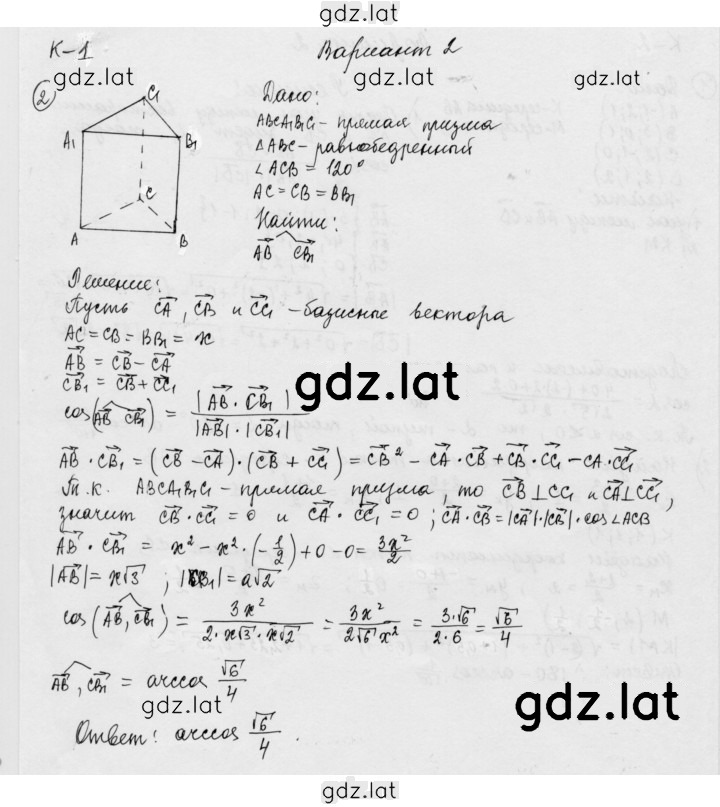 gdz.lat
К-1 Вариант 2
gdz.lat gdz.lat gdz.lat
2
C₁
A₁
B₁
C
A
B
Дано:
ABCA₁B₁C₁ - прямая призма
△ABC - равнобедренный
∠ACB = 120°
AC = CB = BB₁
Найти:
AB CB₁
Решение:
Пусть CA, CB и CC₁ - базисные вектора
AC = CB = BB₁ = x
AB = CB - CA
CB₁ = CB + CC₁
gdz.lat
cos(AB CB₁) = |AB · CB₁| / |AB| · |CB₁|
AB · CB₁ = (CB - CA) · (CB + CC₁) = CB² - CA · CB + CB · CC₁ - CA · CC₁
Т.к. ABCA₁B₁C₁ - прямая призма то CB ⊥ CC₁ и CA ⊥ CC₁,
значит CB · CC₁ = 0 и CA · CC₁ = 0; CA · CB = |CA| · |CB| · cos∠ACB
AB · CB₁ = x² - x² · (-1/2) + 0 - 0 = 3x²/2
|AB| = x√3 ; |CB₁| = a√2
cos(AB, CB₁) = 3x² / 2 · x√3 · x√2 = 3x² / 2√6 x² = 3·√6 / 2·6 = √6 / 4
AB, CB₁ = arccos √6/4
gdz.lat
gdz.lat
Ответ: arccos √6/4
gdz.lat